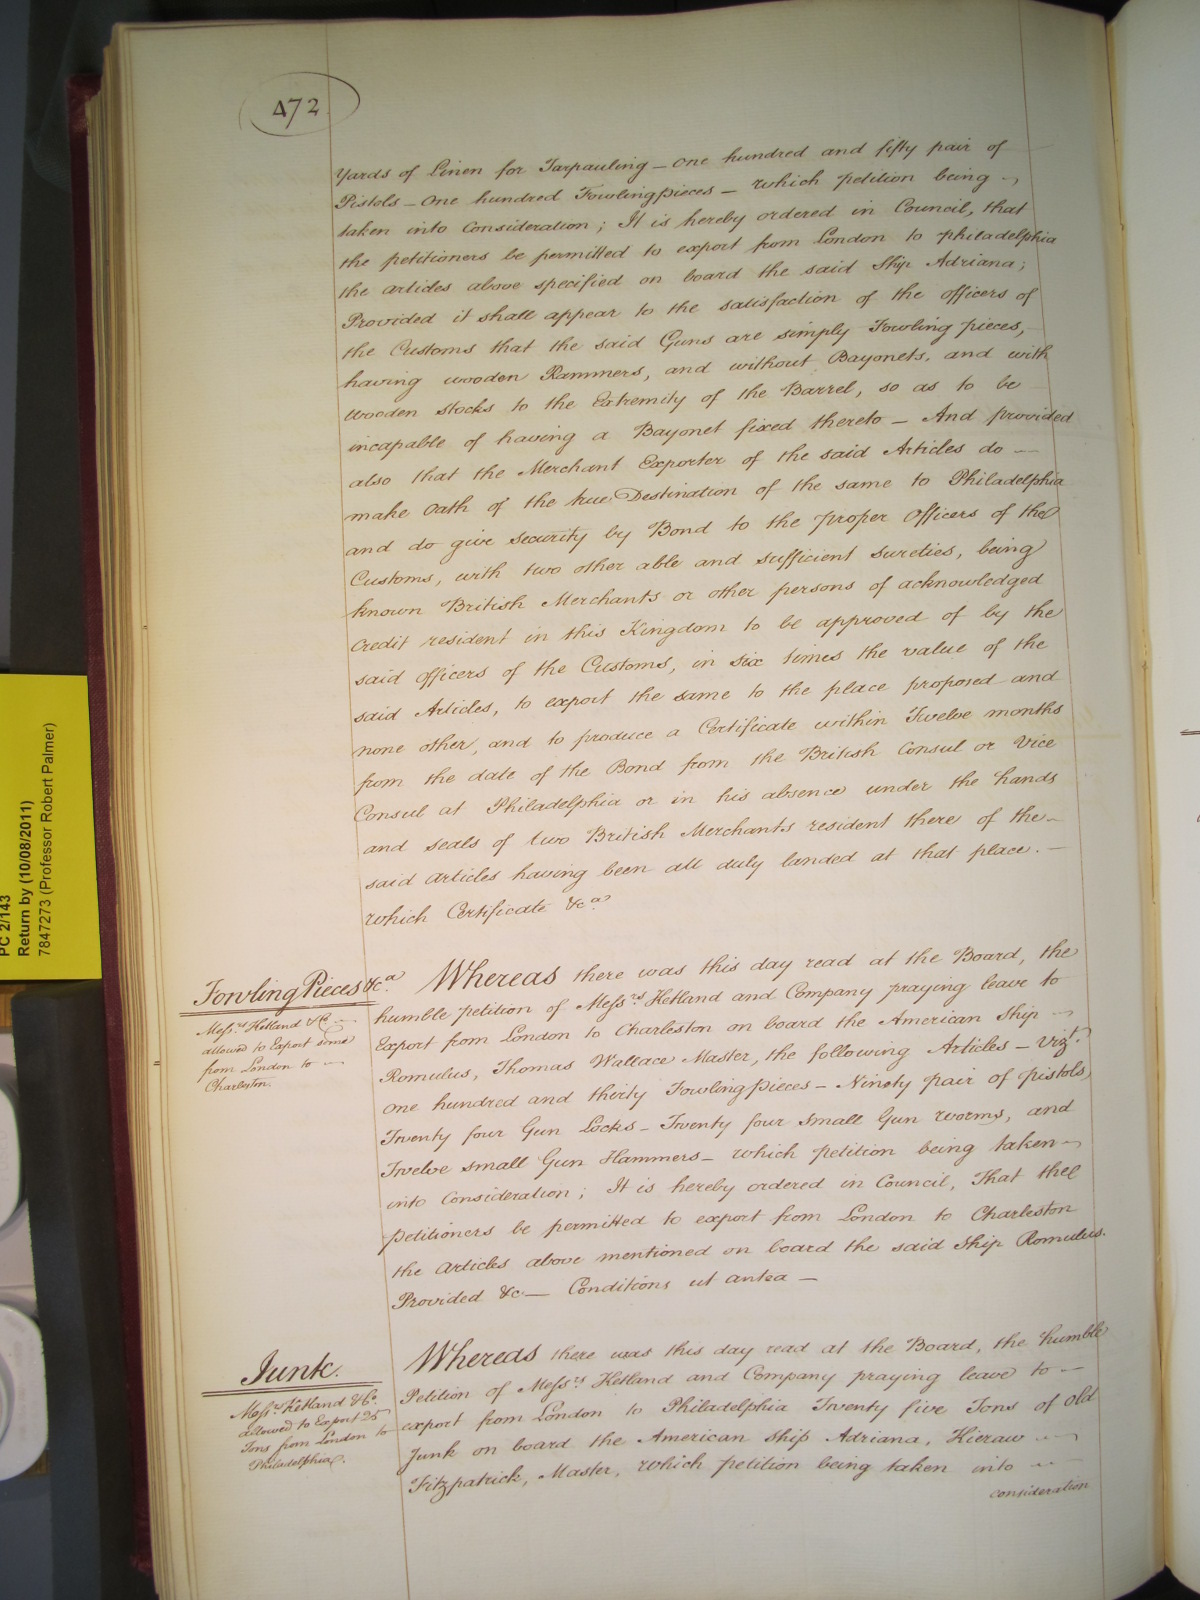 472
Yards of Linen for Tarpauling — One hundred and fifty pair of
Pistols — One hundred Fowlingpieces — which petition being
taken into Consideration; It is hereby ordered in Council, that
the petitioners be permitted to export from London to philadelphia
the articles above specified on board the said Ship Adriana;
Provided it shall appear to the satisfaction of the officers of
the Customs that the said Guns are simply Fowling pieces,
having wooden Rammers, and without Bayonets, and with
wooden stocks to the Extremity of the Barrel, so as to be
incapable of having a Bayonet fixed thereto — And provided
also that the Merchant Exporter of the said Articles do —
make Oath of the true Destination of the same to Philadelphia
and do give security by Bond to the proper Officers of the
Customs, with two other able and sufficient sureties, being
known British Merchants or other persons of acknowledged
Credit resident in this Kingdom to be approved of by the
said officers of the Customs, in six times the value of the
said Articles, to export the same to the place proposed and
none other, and to produce a Certificate within Twelve months
from the date of the Bond from the British Consul or Vice
Consul at Philadelphia or in his absence under the hands
and seals of two British Merchants resident there of the —
said articles having been all duly landed at that place. —
which Certificate &ca
Fowling Pieces &ca
Messrs Ketland & Co
allowed to Export some
from London to —
Charleston.
Whereas there was this day read at the Board, the
humble petition of Messrs Ketland and Company praying leave to
Export from London to Charleston on board the American Ship
Romulus, Thomas Wallace Master, the following Articles — Vizt.
One hundred and thirty Fowlingpieces — Ninety pair of pistols,
Twenty four Gun Locks — Twenty four small Gun worms, and
Twelve small Gun Hammers — which petition being taken
into Consideration; It is hereby ordered in Council, That the
petitioners be permitted to export from London to Charleston
the articles above mentioned on board the said Ship Romulus.
Provided &c — Conditions ut antea —
Junk.
Messrs Ketland & Co.
allowed to Export 25
Tons from London to
Philadelphia.
Whereas there was this day read at the Board, the humble
Petition of Messrs Ketland and Company praying leave to —
export from London to Philadelphia Twenty five Tons of Old
Junk on board the American Ship Adriana, Kieraw
Fitzpatrick, Master, which petition being taken into
consideration
PC 2/143
Return by (10/08/2011)
7847273 (Professor Robert Palmer)